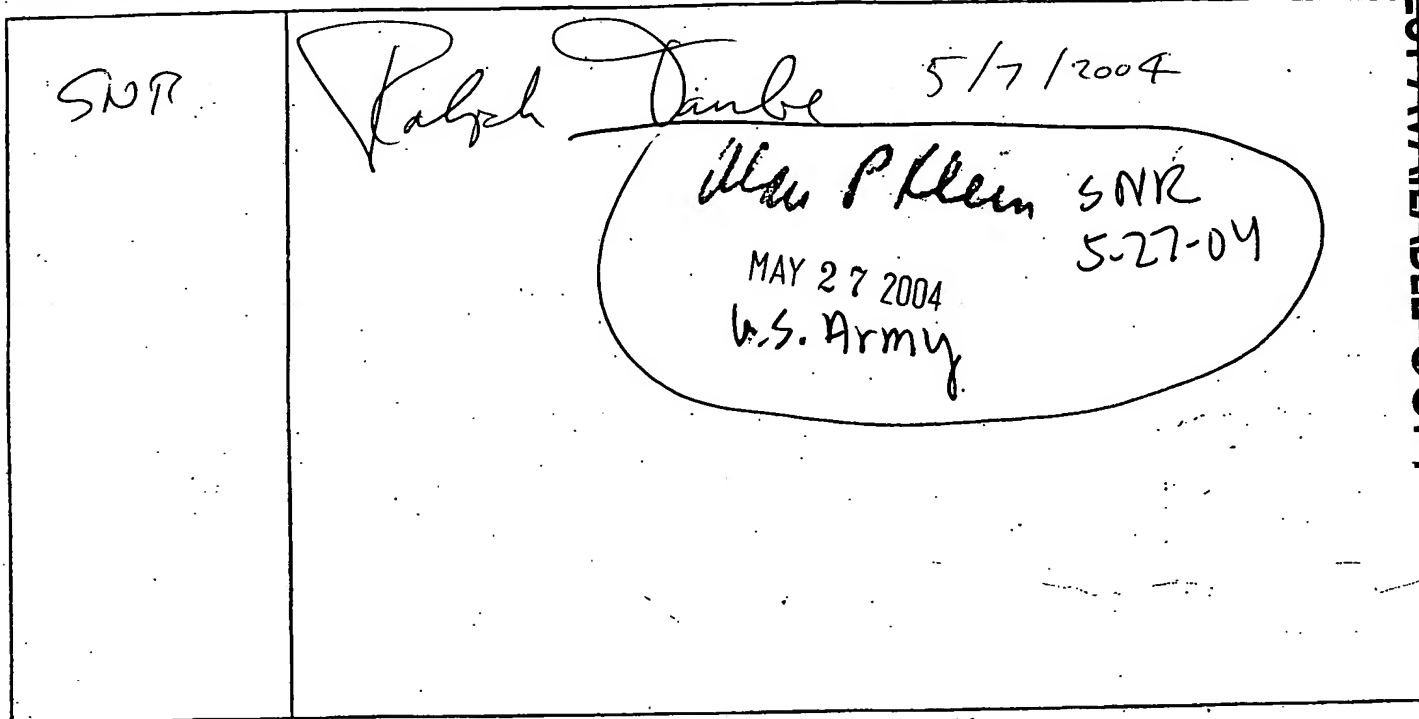 SNR
Ralph 5/7/2004
Alan P Klein SNR
5-27-04
MAY 27 2004
U.S. Army